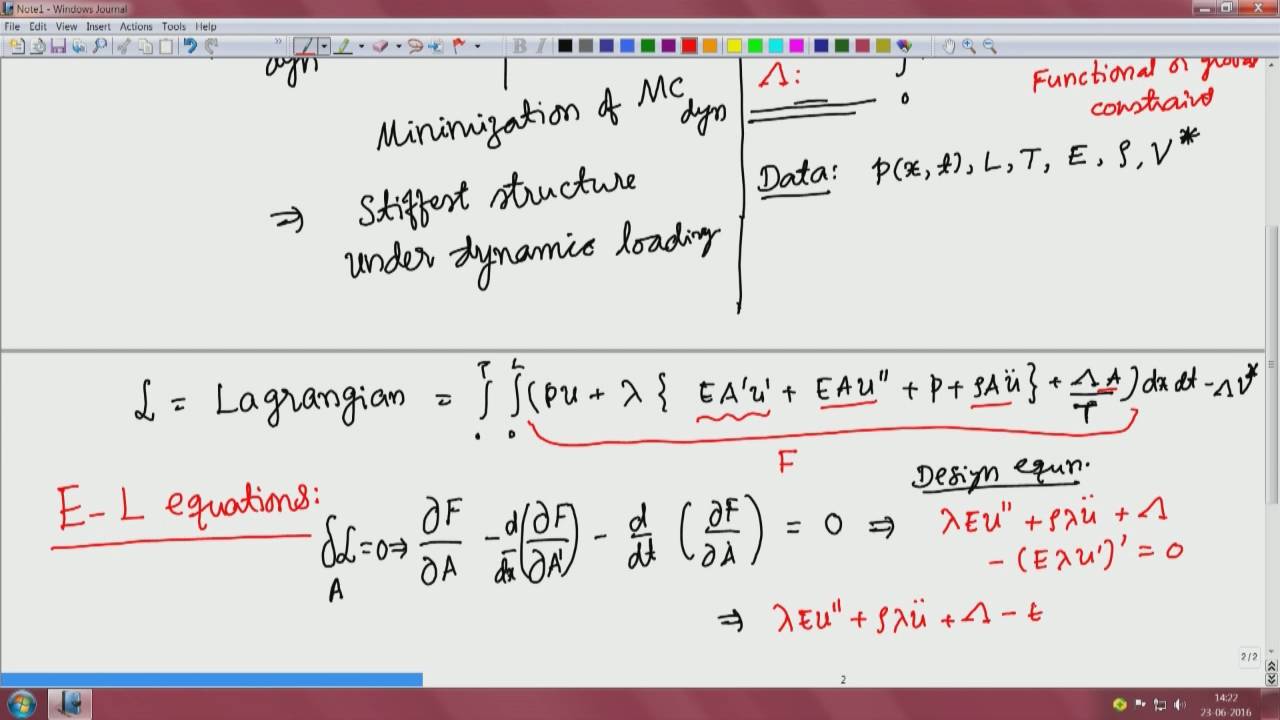 Note1 - Windows Journal
File Edit View Insert Actions Tools Help
dyn
Minimization of MC dyn
⇒ Stiffest structure
under dynamic loading
Λ:
0
Functional or global
constraint
Data: p(x, t), L, T, E, ρ, V*
ℒ = Lagrangian = ∫₀ᵀ ∫₀ᴸ (pu + λ { EA'u' + EAu'' + p + ρAü } + ΛA/T) dx dt - ΛV*
F
E-L equations:
Design equn.
δ_A ℒ = 0 ⇒ ∂F/∂A - d/dx (∂F/∂A') - d/dt (∂F/∂Ȧ) = 0 ⇒ λEu'' + ρλü + Λ
- (Eλu')' = 0
⇒ λEu'' + ρλü + Λ - E
2/2
2
14:22
23-06-2016